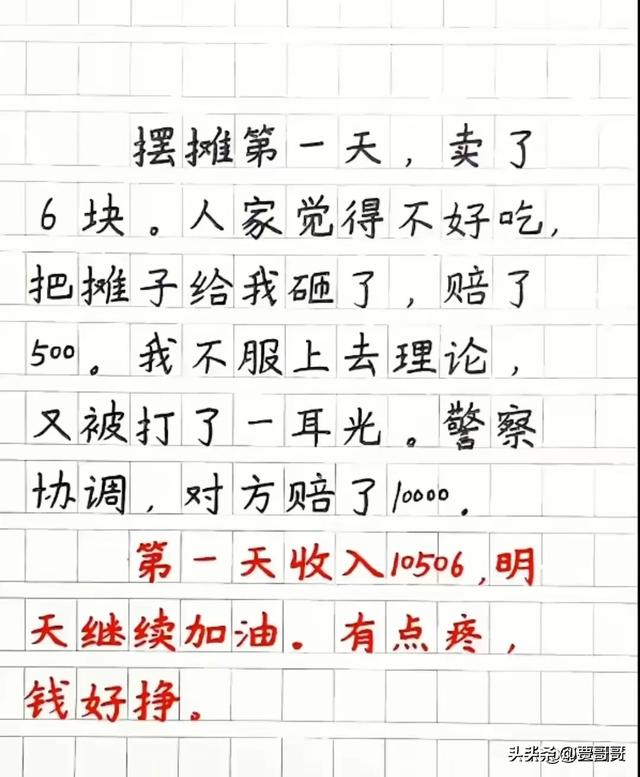 摆摊第一天，卖了
6块。人家觉得不好吃，
把摊子给我砸了，赔了
500。我不服上去理论，
又被打了一耳光。警察
协调，对方赔了10000.
第一天收入10506,明
天继续加油.有点疼，
钱好挣。
头条 @贾哥哥